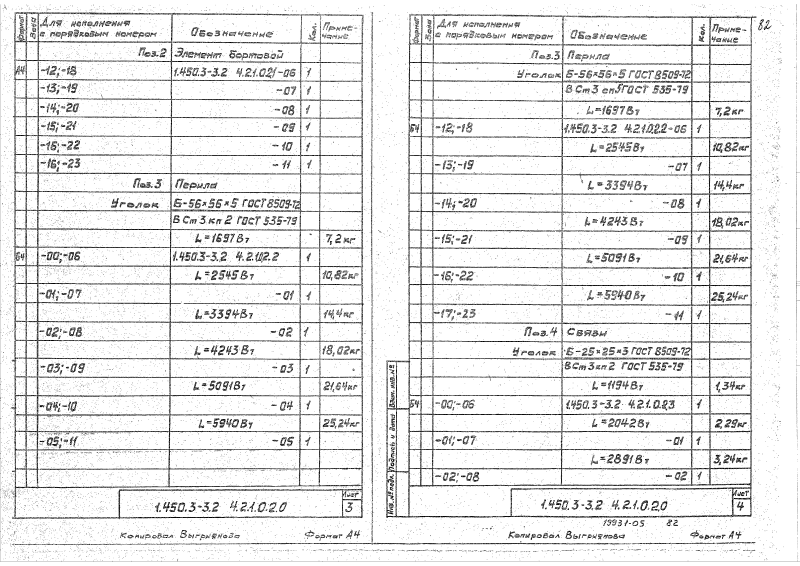 Формат Зона Для исполнения с порядковым номером Обозначение Кол. Примечание
Поз.2 Элемент бортовой
А4 -12;-18 1.450.3-3.2 4.2.1.0.2.1-06 1
-13;-19 -07 1
-14;-20 -08 1
-15;-21 -09 1
-16;-22 -10 1
-16;-23 -11 1
Поз.3 Перила
Уголок Б-56×56×5 ГОСТ 8509-72
В Ст3 кп 2 ГОСТ 535-79
L=1697 Вт 7,2кг
Б4 -00;-06 1.450.3-3.2 4.2.1.0.2.2 1
L=2545 Вт 10,82кг
-01;-07 -01 1
L=3394 Вт 14,4кг
-02;-08 -02 1
L=4243 Вт 18,02кг
-03;-09 -03 1
L=5091 Вт 21,64кг
-04;-10 -04 1
L=5940 Вт 25,24кг
-05;-11 -05 1
1.450.3-3.2 4.2.1.0.2.0 Лист 3
Копировал Выгрикова Формат А4
82
Формат Зона Для исполнения с порядковым номером Обозначение Кол. Примечание
Поз.3 Перила
Уголок Б-56×56×5 ГОСТ 8509-72
В Ст3 сп5 ГОСТ 535-79
L=1697 Вт 7,2кг
Б4 -12;-18 1.450.3-3.2 4.2.1.0.2.2-06 1
L=2545 Вт 10,82кг
-13;-19 -07 1
L=3394 Вт 14,4кг
-14;-20 -08 1
L=4243 Вт 18,02кг
-15;-21 -09 1
L=5091 Вт 21,64кг
-16;-22 -10 1
L=5940 Вт 25,24кг
-17;-23 -11 1
Поз.4 Связи
Уголок Б-25×25×3 ГОСТ 8509-72
В Ст3 кп2 ГОСТ 535-79
L=1194 Вт 1,34кг
Б4 -00;-06 1.450.3-3.2 4.2.1.0.2.3 1
L=2042 Вт 2,29кг
-01;-07 -01 1
L=2891 Вт 3,24кг
-02;-08 -02 1
Инв.№ подл. Подпись и дата Взам. инв. №
1.450.3-3.2 4.2.1.0.2.0 Лист 4
19931-05 82
Копировал Формат А4